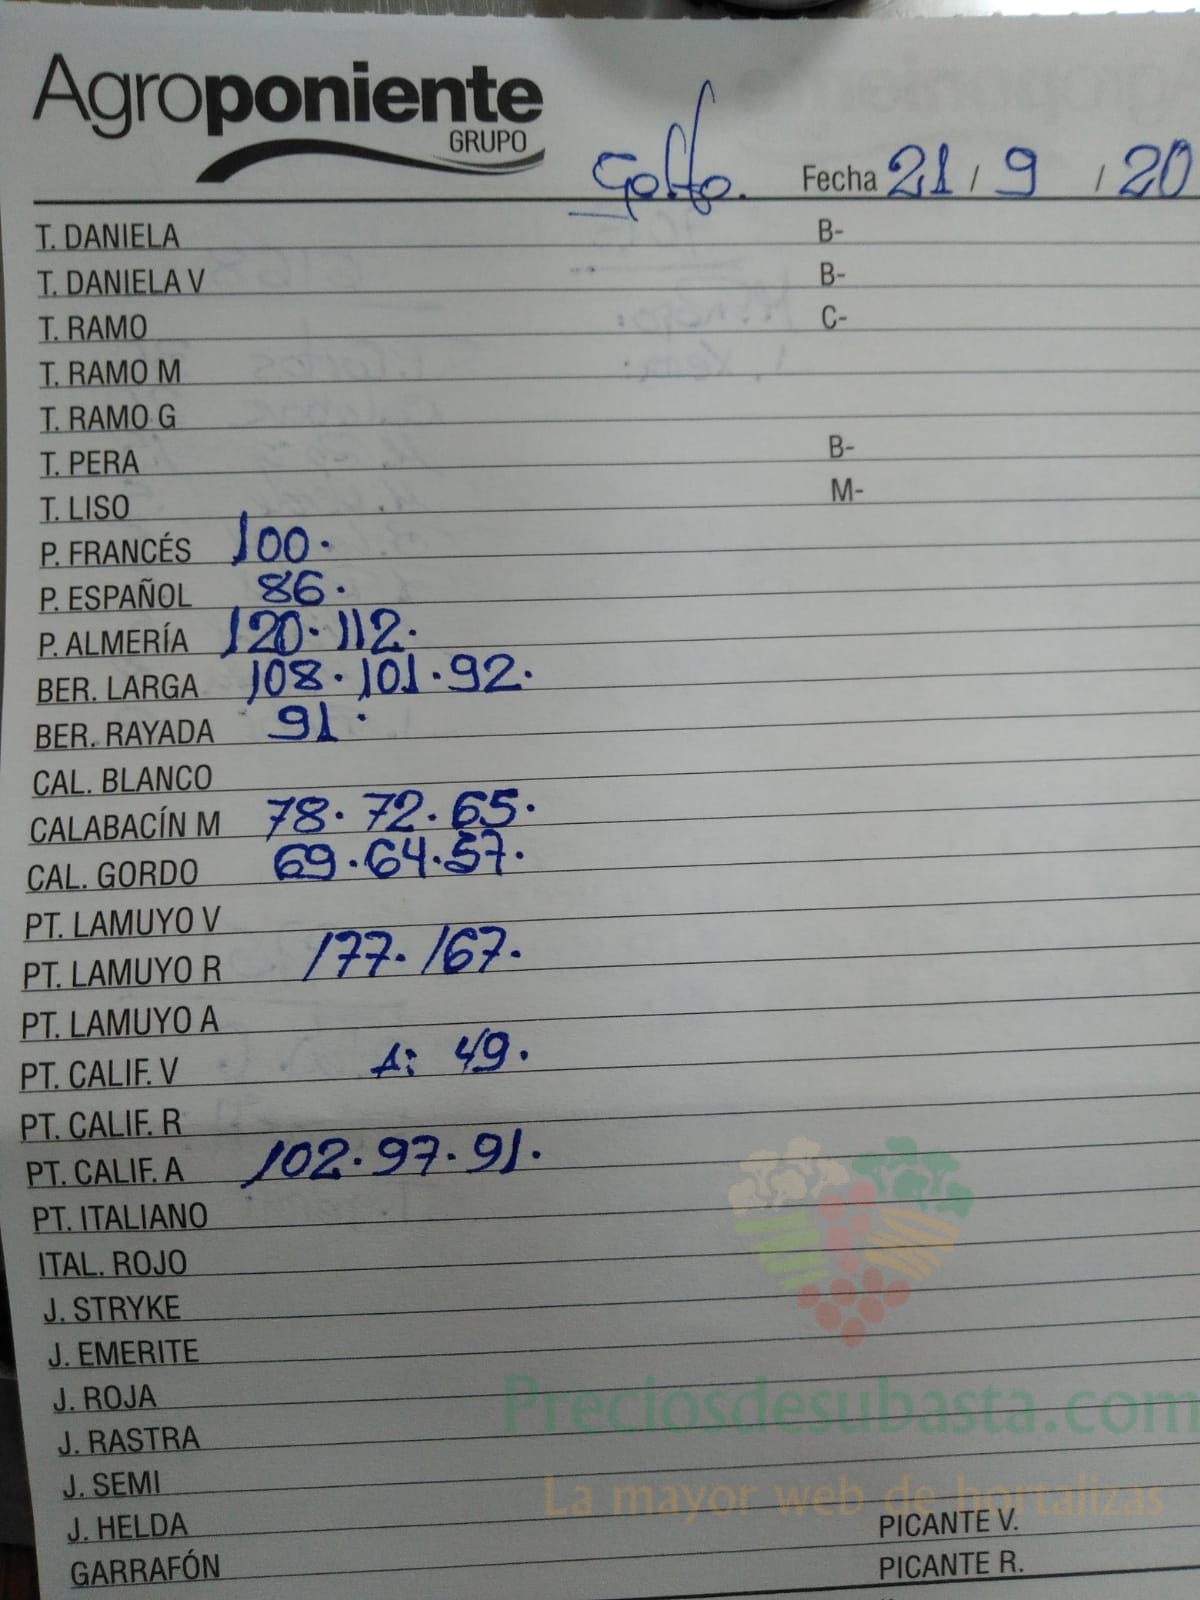 Agroponiente
GRUPO
Golfo. Fecha 21 / 9 / 20
T. DANIELA B-
T. DANIELA V B-
T. RAMO C-
T. RAMO M
T. RAMO G
T. PERA B-
T. LISO M-
P. FRANCÉS 100.
P. ESPAÑOL 86.
P. ALMERÍA 120. 112.
BER. LARGA 108. 101. 92.
BER. RAYADA 91.
CAL. BLANCO
CALABACÍN M 78. 72. 65.
CAL. GORDO 69. 64. 57.
PT. LAMUYO V
PT. LAMUYO R 177. 167.
PT. LAMUYO A
PT. CALIF. V A: 49.
PT. CALIF. R
PT. CALIF. A 102. 97. 91.
PT. ITALIANO
ITAL. ROJO
J. STRYKE
J. EMERITE
J. ROJA
Preciosdesubasta.com
J. RASTRA
J. SEMI
La mayor web de hortalizas
J. HELDA PICANTE V.
GARRAFÓN PICANTE R.